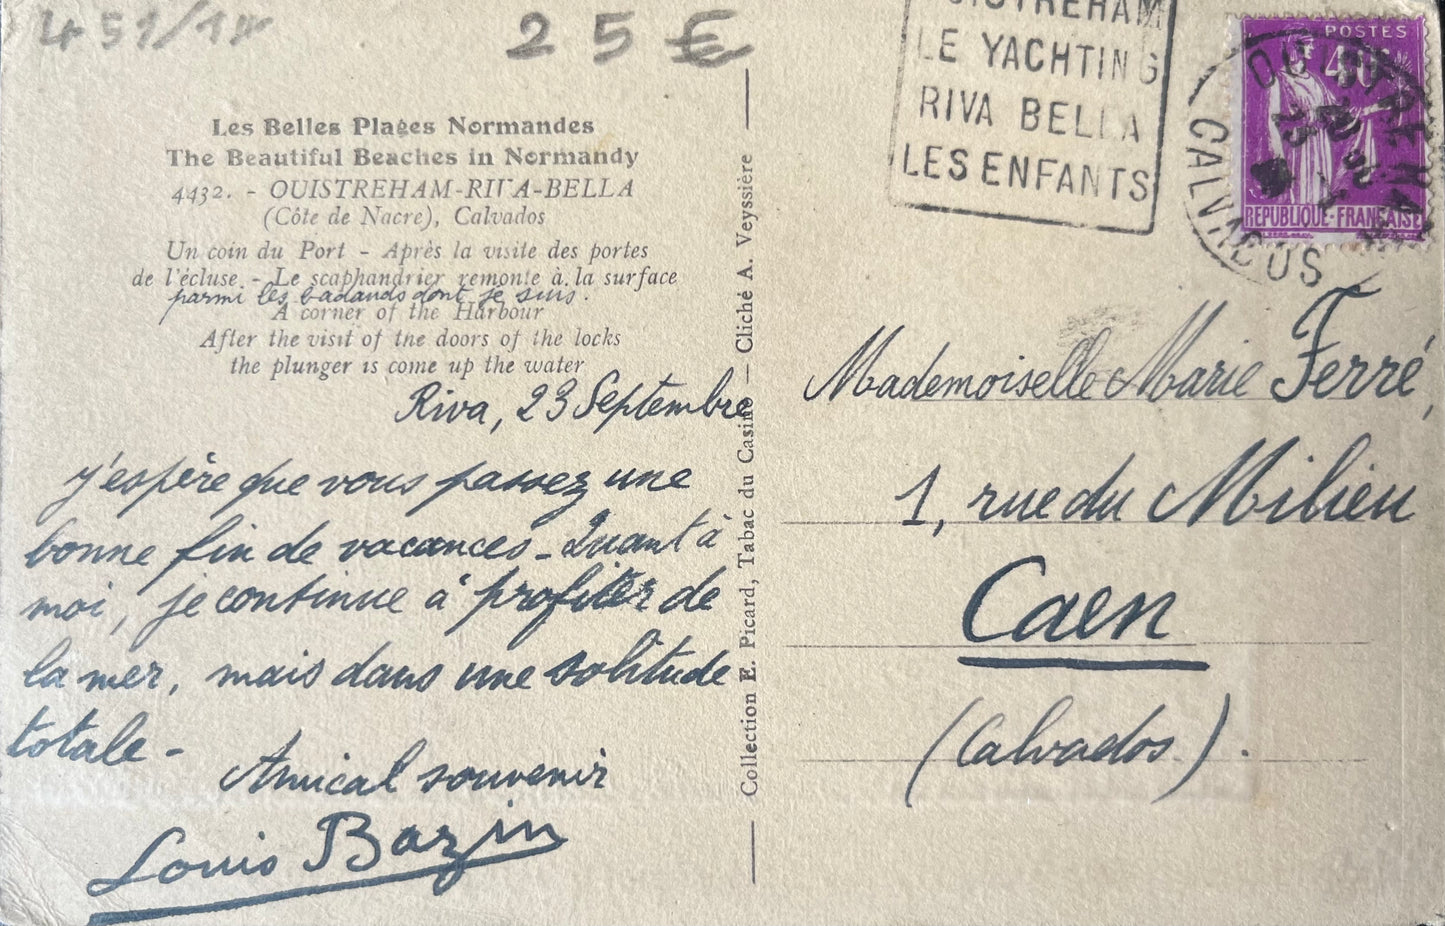 451/14
25 €
Les Belles Plages Normandes
The Beautiful Beaches in Normandy
4432. - OUISTREHAM-RIVA-BELLA
(Côte de Nacre), Calvados
Un coin du Port - Après la visite des portes
de l'écluse - Le scaphandrier remonte à la surface
parmi les badauds dont je suis.
A corner of the Harbour
After the visit of the doors of the locks
the plunger is come up the water
Riva, 23 Septembre
J'espère que vous passez une
bonne fin de vacances - Quant à
moi, je continue à profiter de
la mer, mais dans une solitude
totale -
Amical souvenir
Louis Bazin
Collection E. Picard, Tabac du Casino — Cliché A. Veyssière
OUISTREHAM
LE YACHTING
RIVA BELLA
LES ENFANTS
POSTES
40c
REPUBLIQUE-FRANÇAISE
OUISTREHAM
CALVADOS
Mademoiselle Marie Ferré,
1, rue du Milieu
Caen
(Calvados).